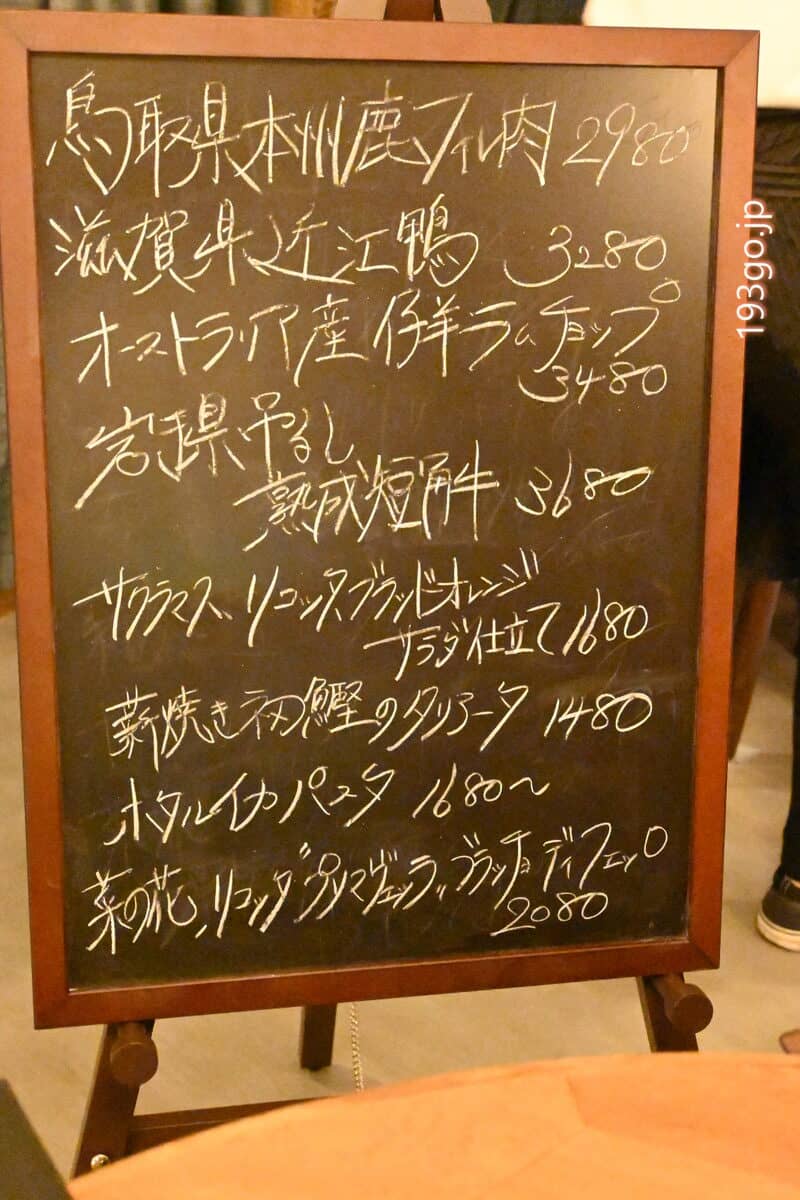 鳥取県本州鹿フィレ肉 2980
滋賀県近江鴨 3280
オーストラリア産 仔羊ラムチョップ
3480
岩手県吊るし
熟成短角牛 3680
サクラマス、リコッタ、ブラッドオレンジ
サラダ仕立て 1680
薪焼き初鰹のタリアータ 1480
ホタルイカ パスタ 1680〜
菜の花、リコッタ"プリマヴェーラ"ブラッチョディフェッロ
2080
193go.jp